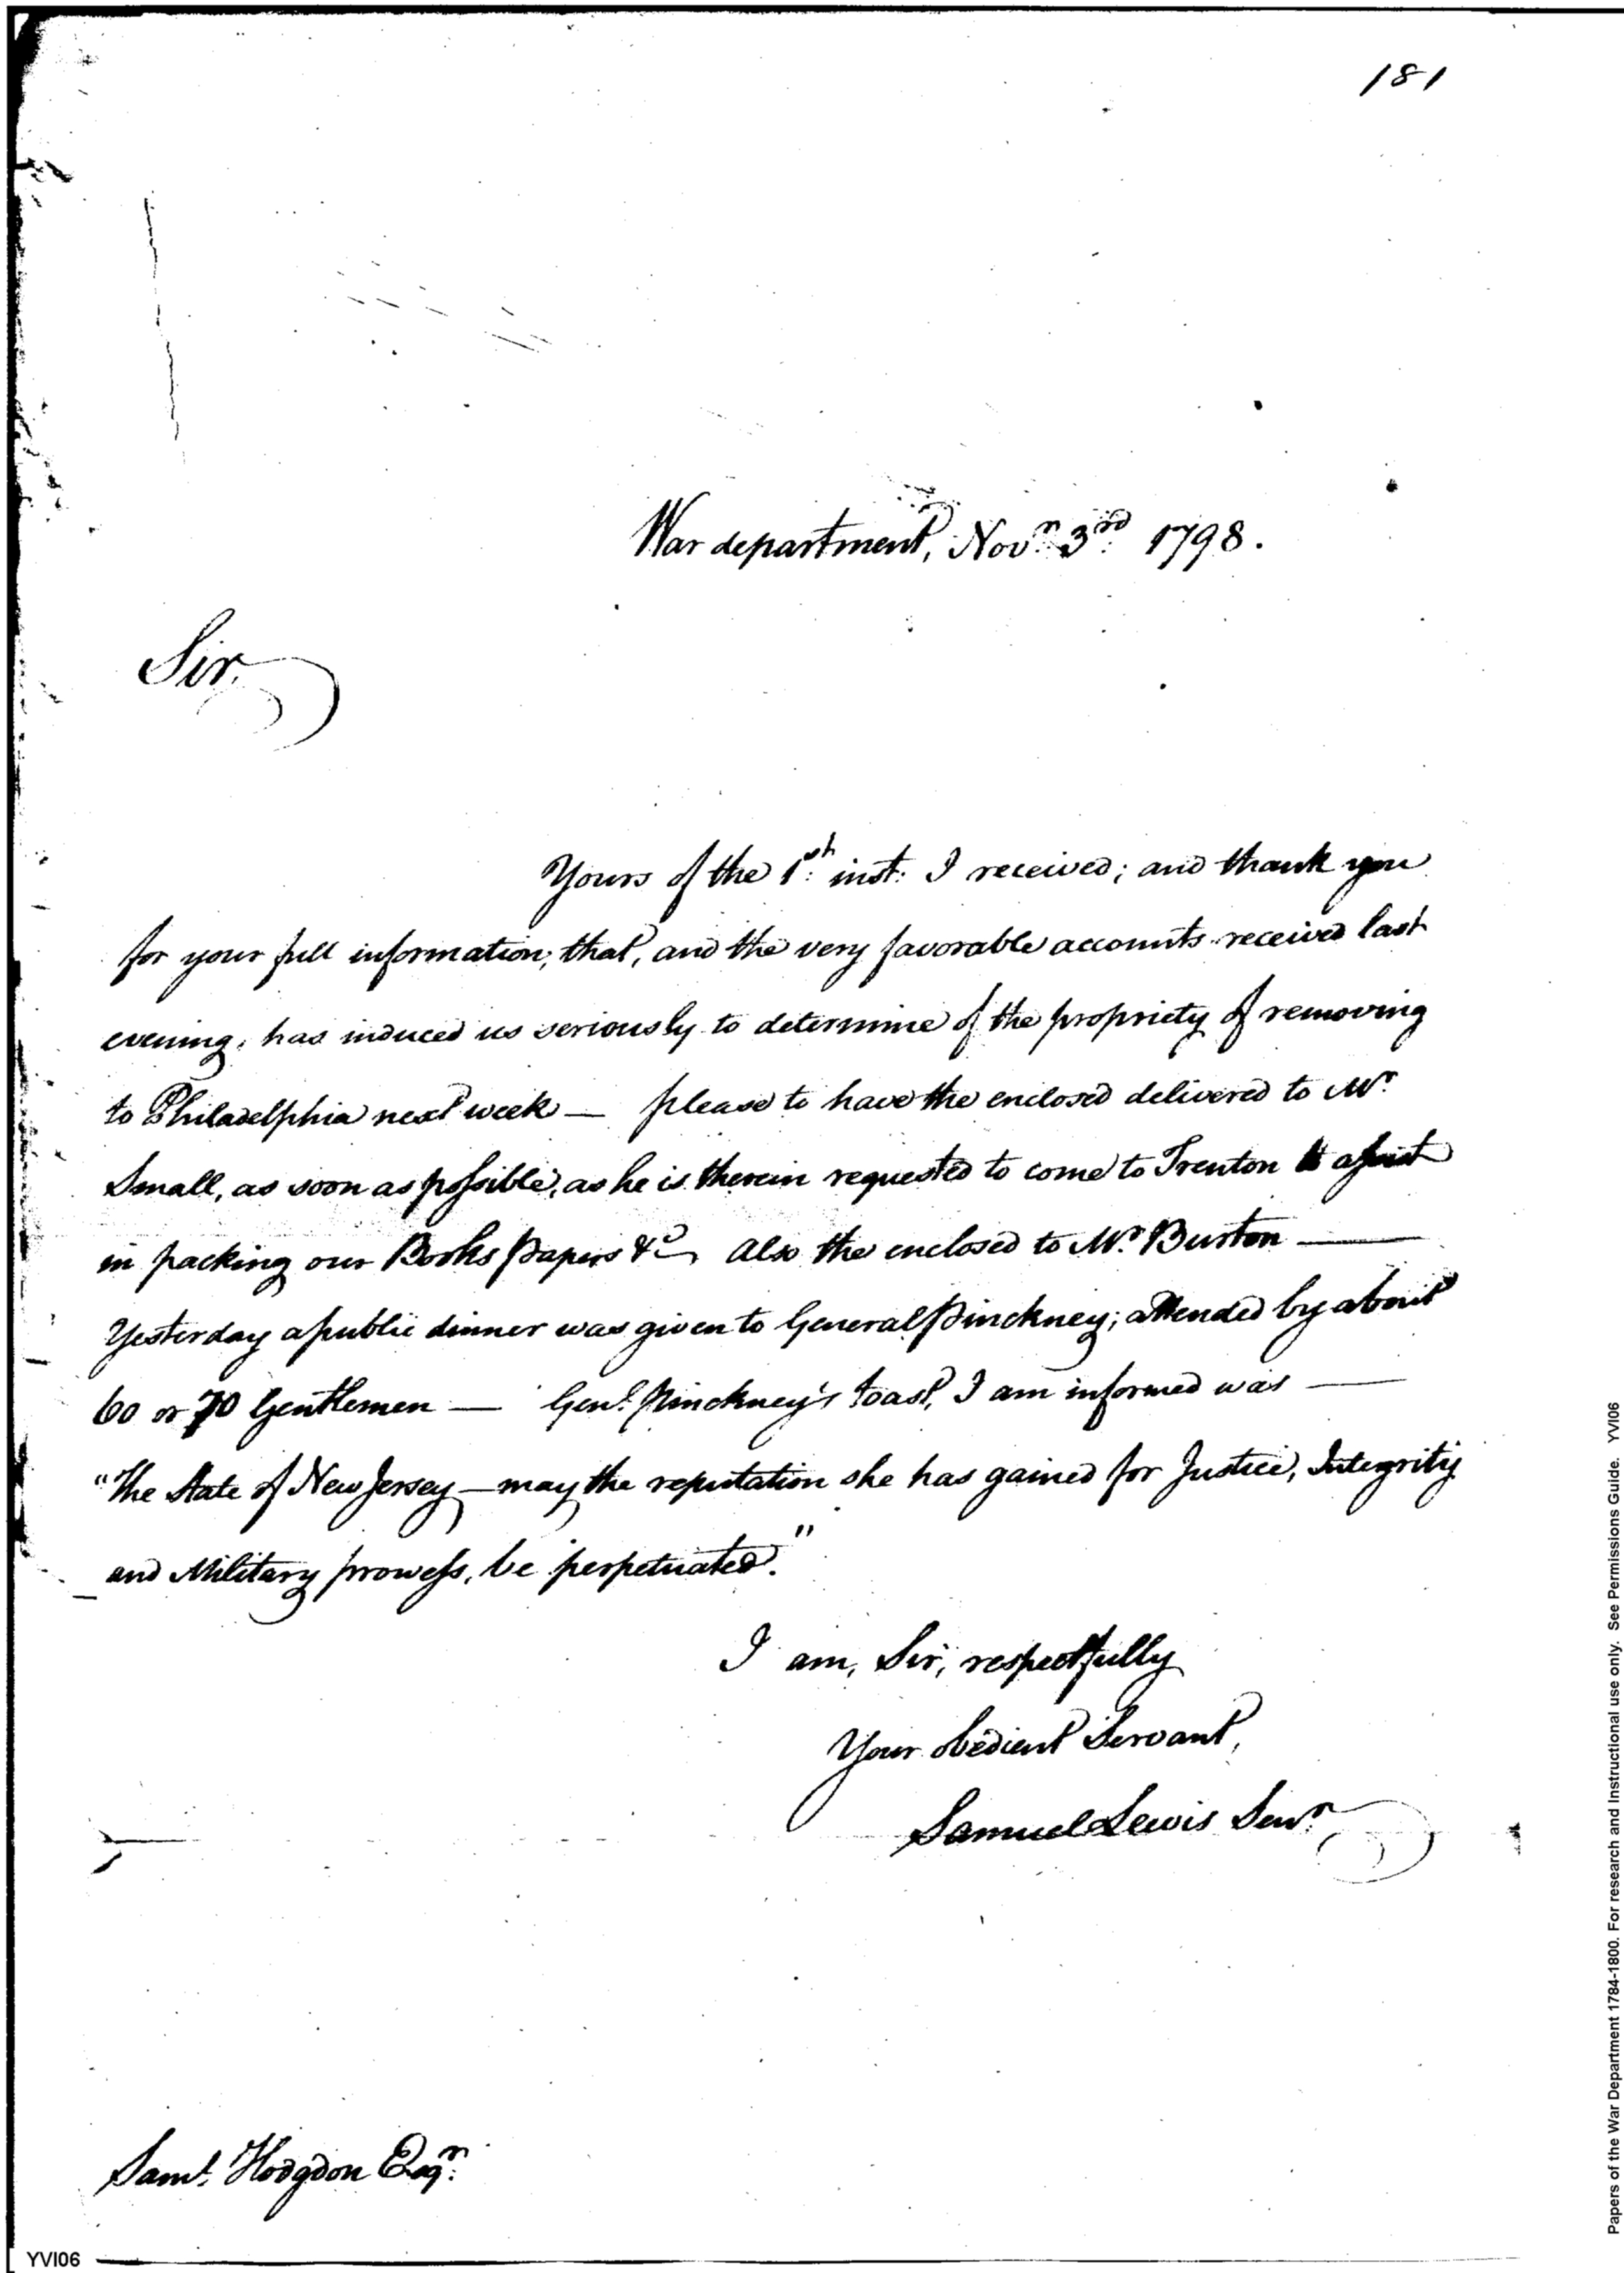 181
War department, Novr. 3rd. 1798.
Sir,
Yours of the 1st. inst. I received; and thank you
for your full information; that, and the very favorable accounts received last
evening, has induced us seriously to determine of the propriety of removing
to Philadelphia next week — please to have the enclosed delivered to Mr.
Small, as soon as possible, as he is therein requested to come to Trenton to assist
in packing our Books papers &c. also the enclosed to Mr. Burton —
Yesterday a public dinner was given to General Pinckney; attended by about
60 or 70 Gentlemen — Genl. Pinckney's toast, I am informed was —
"The State of New Jersey — may the reputation she has gained for Justice, Integrity
and Military prowess, be perpetuated."
I am, Sir, respectfully
Your obedient Servant,
Samuel Lewis Senr.
Saml. Hodgdon Esqr.
YVI06
Papers of the War Department 1784-1800. For research and Instructional use only. See Permissions Guide. YVI06